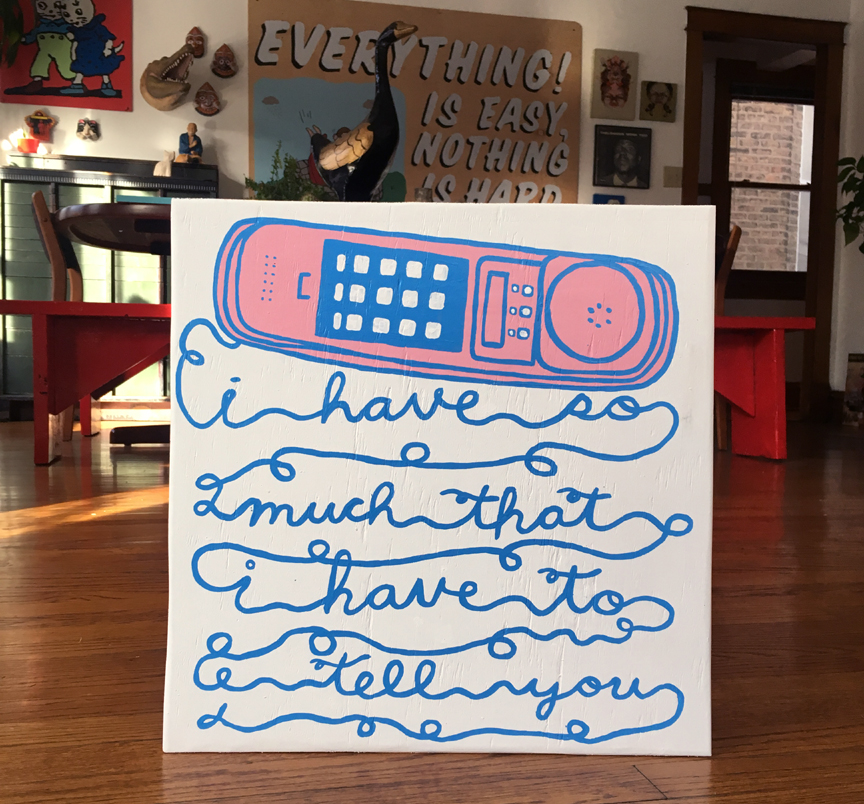 EVERYTHING!
IS EASY,
NOTHING
IS HARD
i have so
much that
i have to
tell you